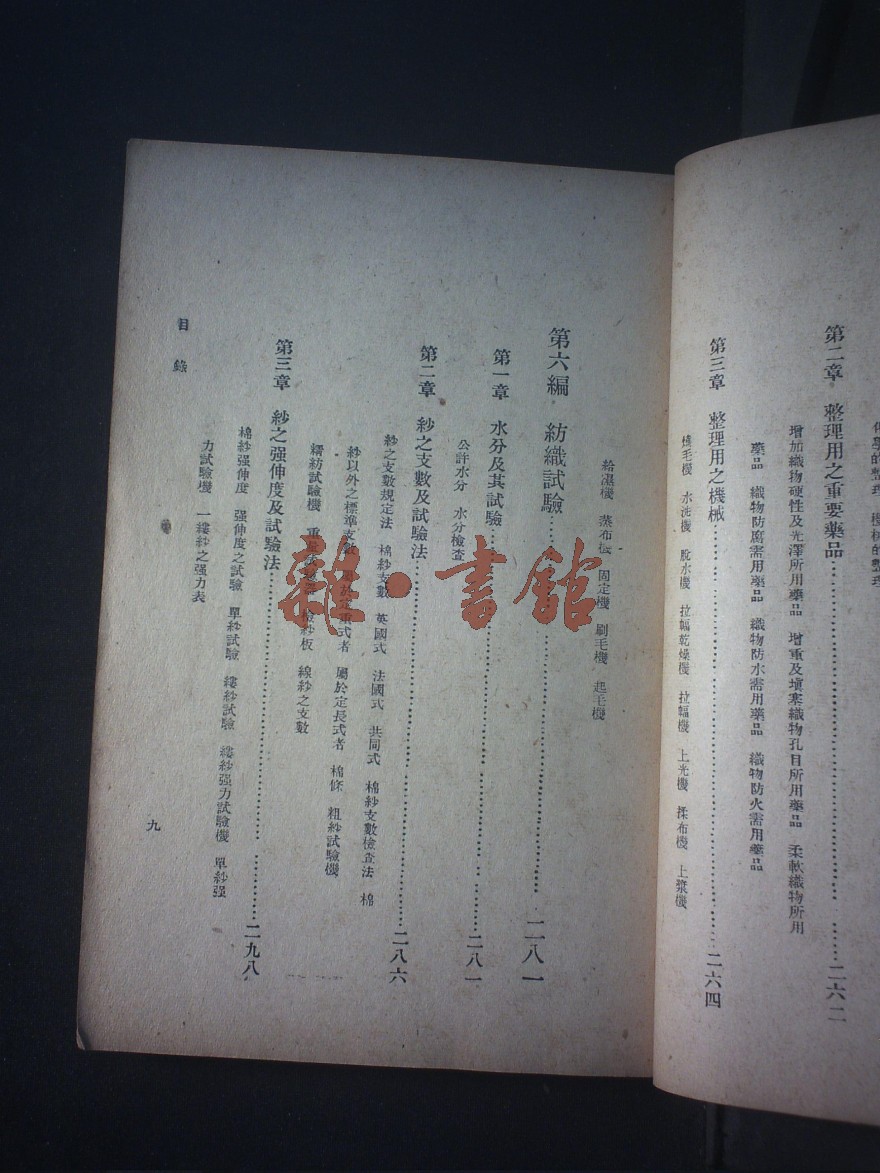 第二章 整理用之重要藥品……二六二
增加織物硬性及光澤所用藥品 增重及填塞織物孔目所用藥品 柔軟織物所用
藥品 織物防腐需用藥品 織物防水需用藥品 織物防火需用藥品
第三章 整理用之機械……二六四
燒毛機 水洗機 脫水機 拉幅乾燥機 拉幅機 上光機 柔布機 上漿機
給濕機 蒸布機 固定機 刷毛機 起毛機
第六編 紡織試驗……二八一
第一章 水分及其試驗……二八一
公許水分 水分檢查
第二章 紗之支數及試驗法……二八六
紗之支數規定法 棉紗支數 英國式 法國式 共同式 棉紗支數檢查法 棉
紗以外之標準支數 屬於定重式者 屬於定長式者 棉條 粗紗試驗機
精紡試驗機 檢紗板 線紗之支數
第三章 紗之强伸度及試驗法……二九八
棉紗强伸度 强伸度之試驗 單紗試驗 縷紗試驗 縷紗强力試驗機 單紗强
力試驗機 一縷紗之强力表
目錄
九
雜·書館